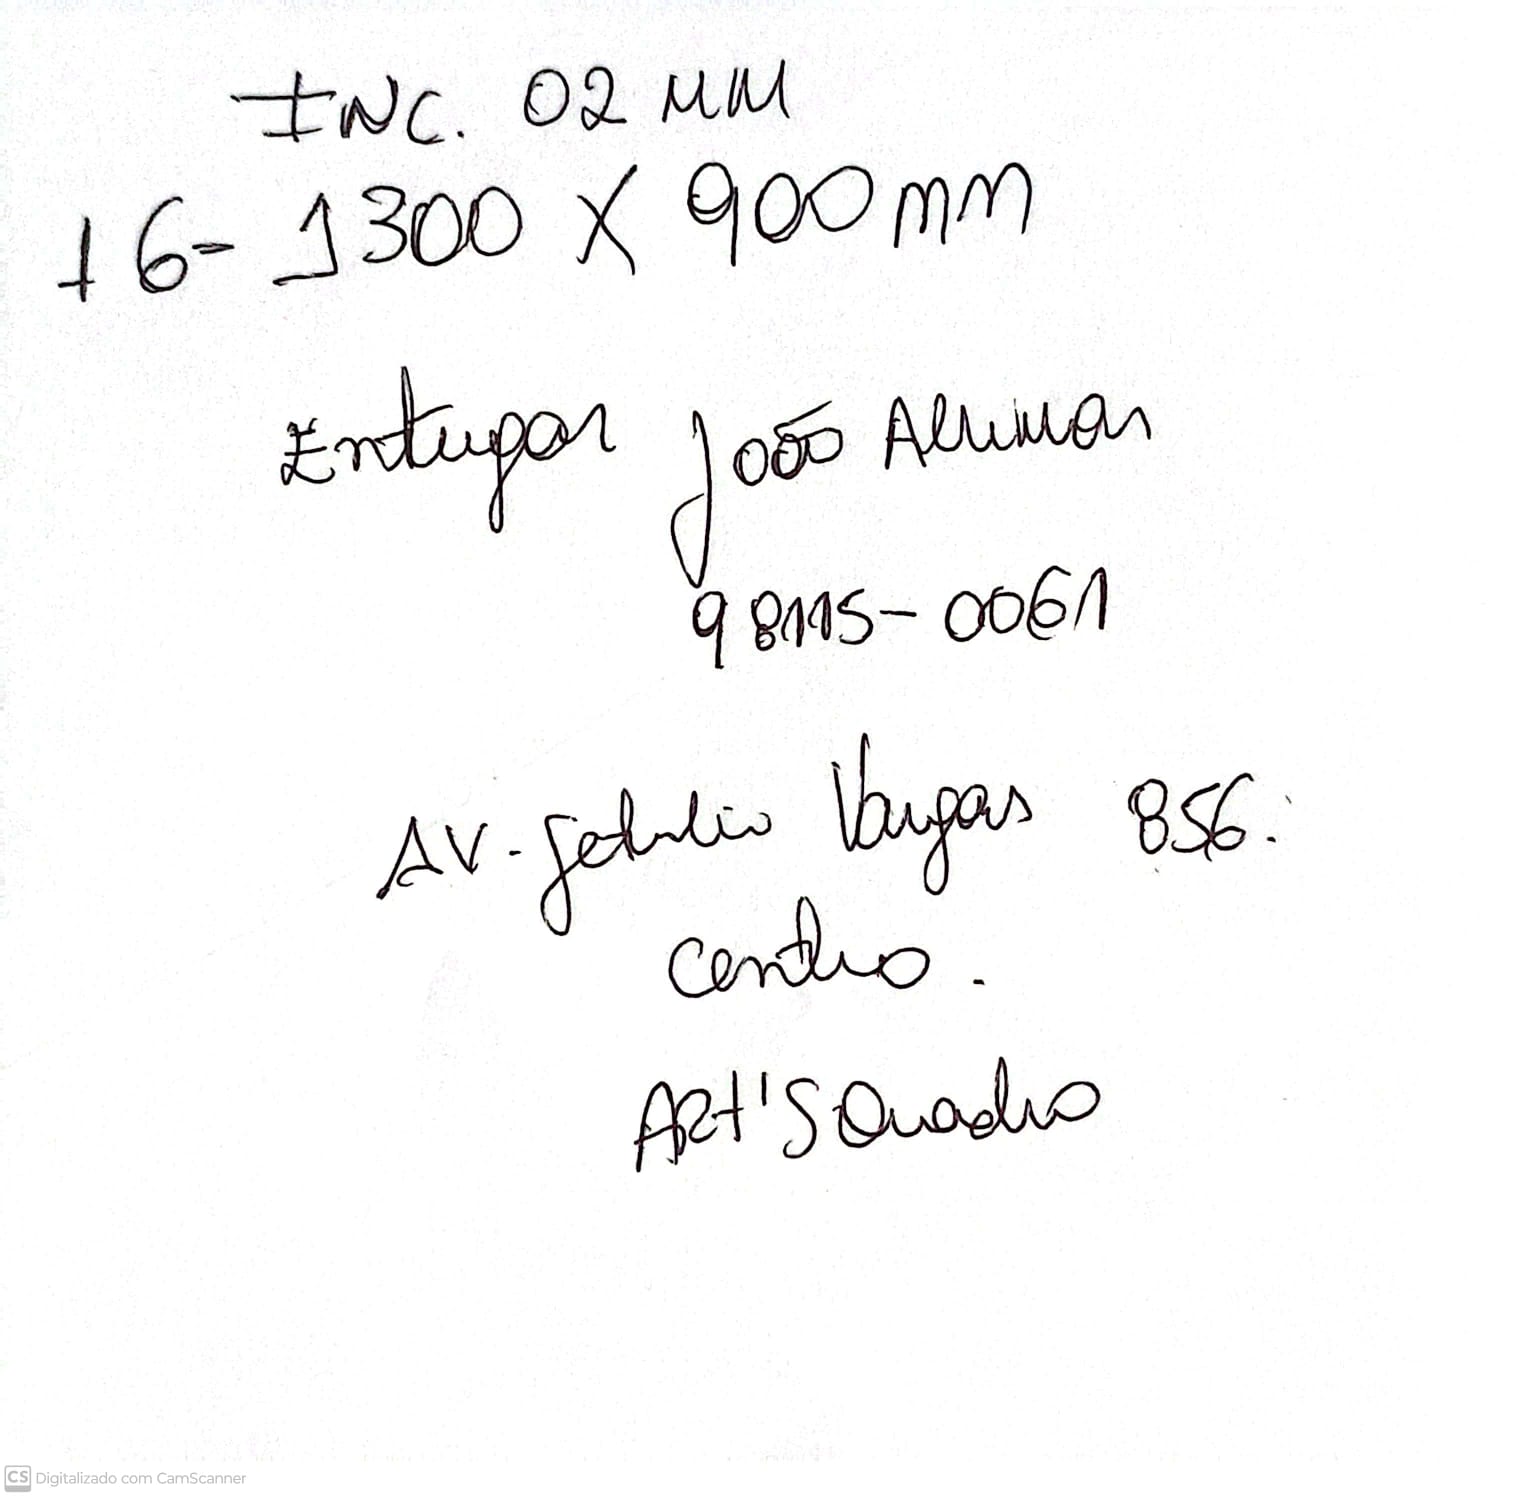 INC. 02 MM
16- 1300 X 900mm
Entregar João Alumar
98115-0061
AV. Getulio Vargas 856.
centro.
ART'S Quadro
CS Digitalizado com CamScanner